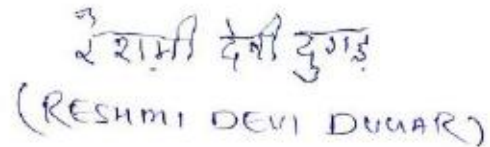 रेशमी देवी दुगड़
(RESHMI DEVI DUGAR)